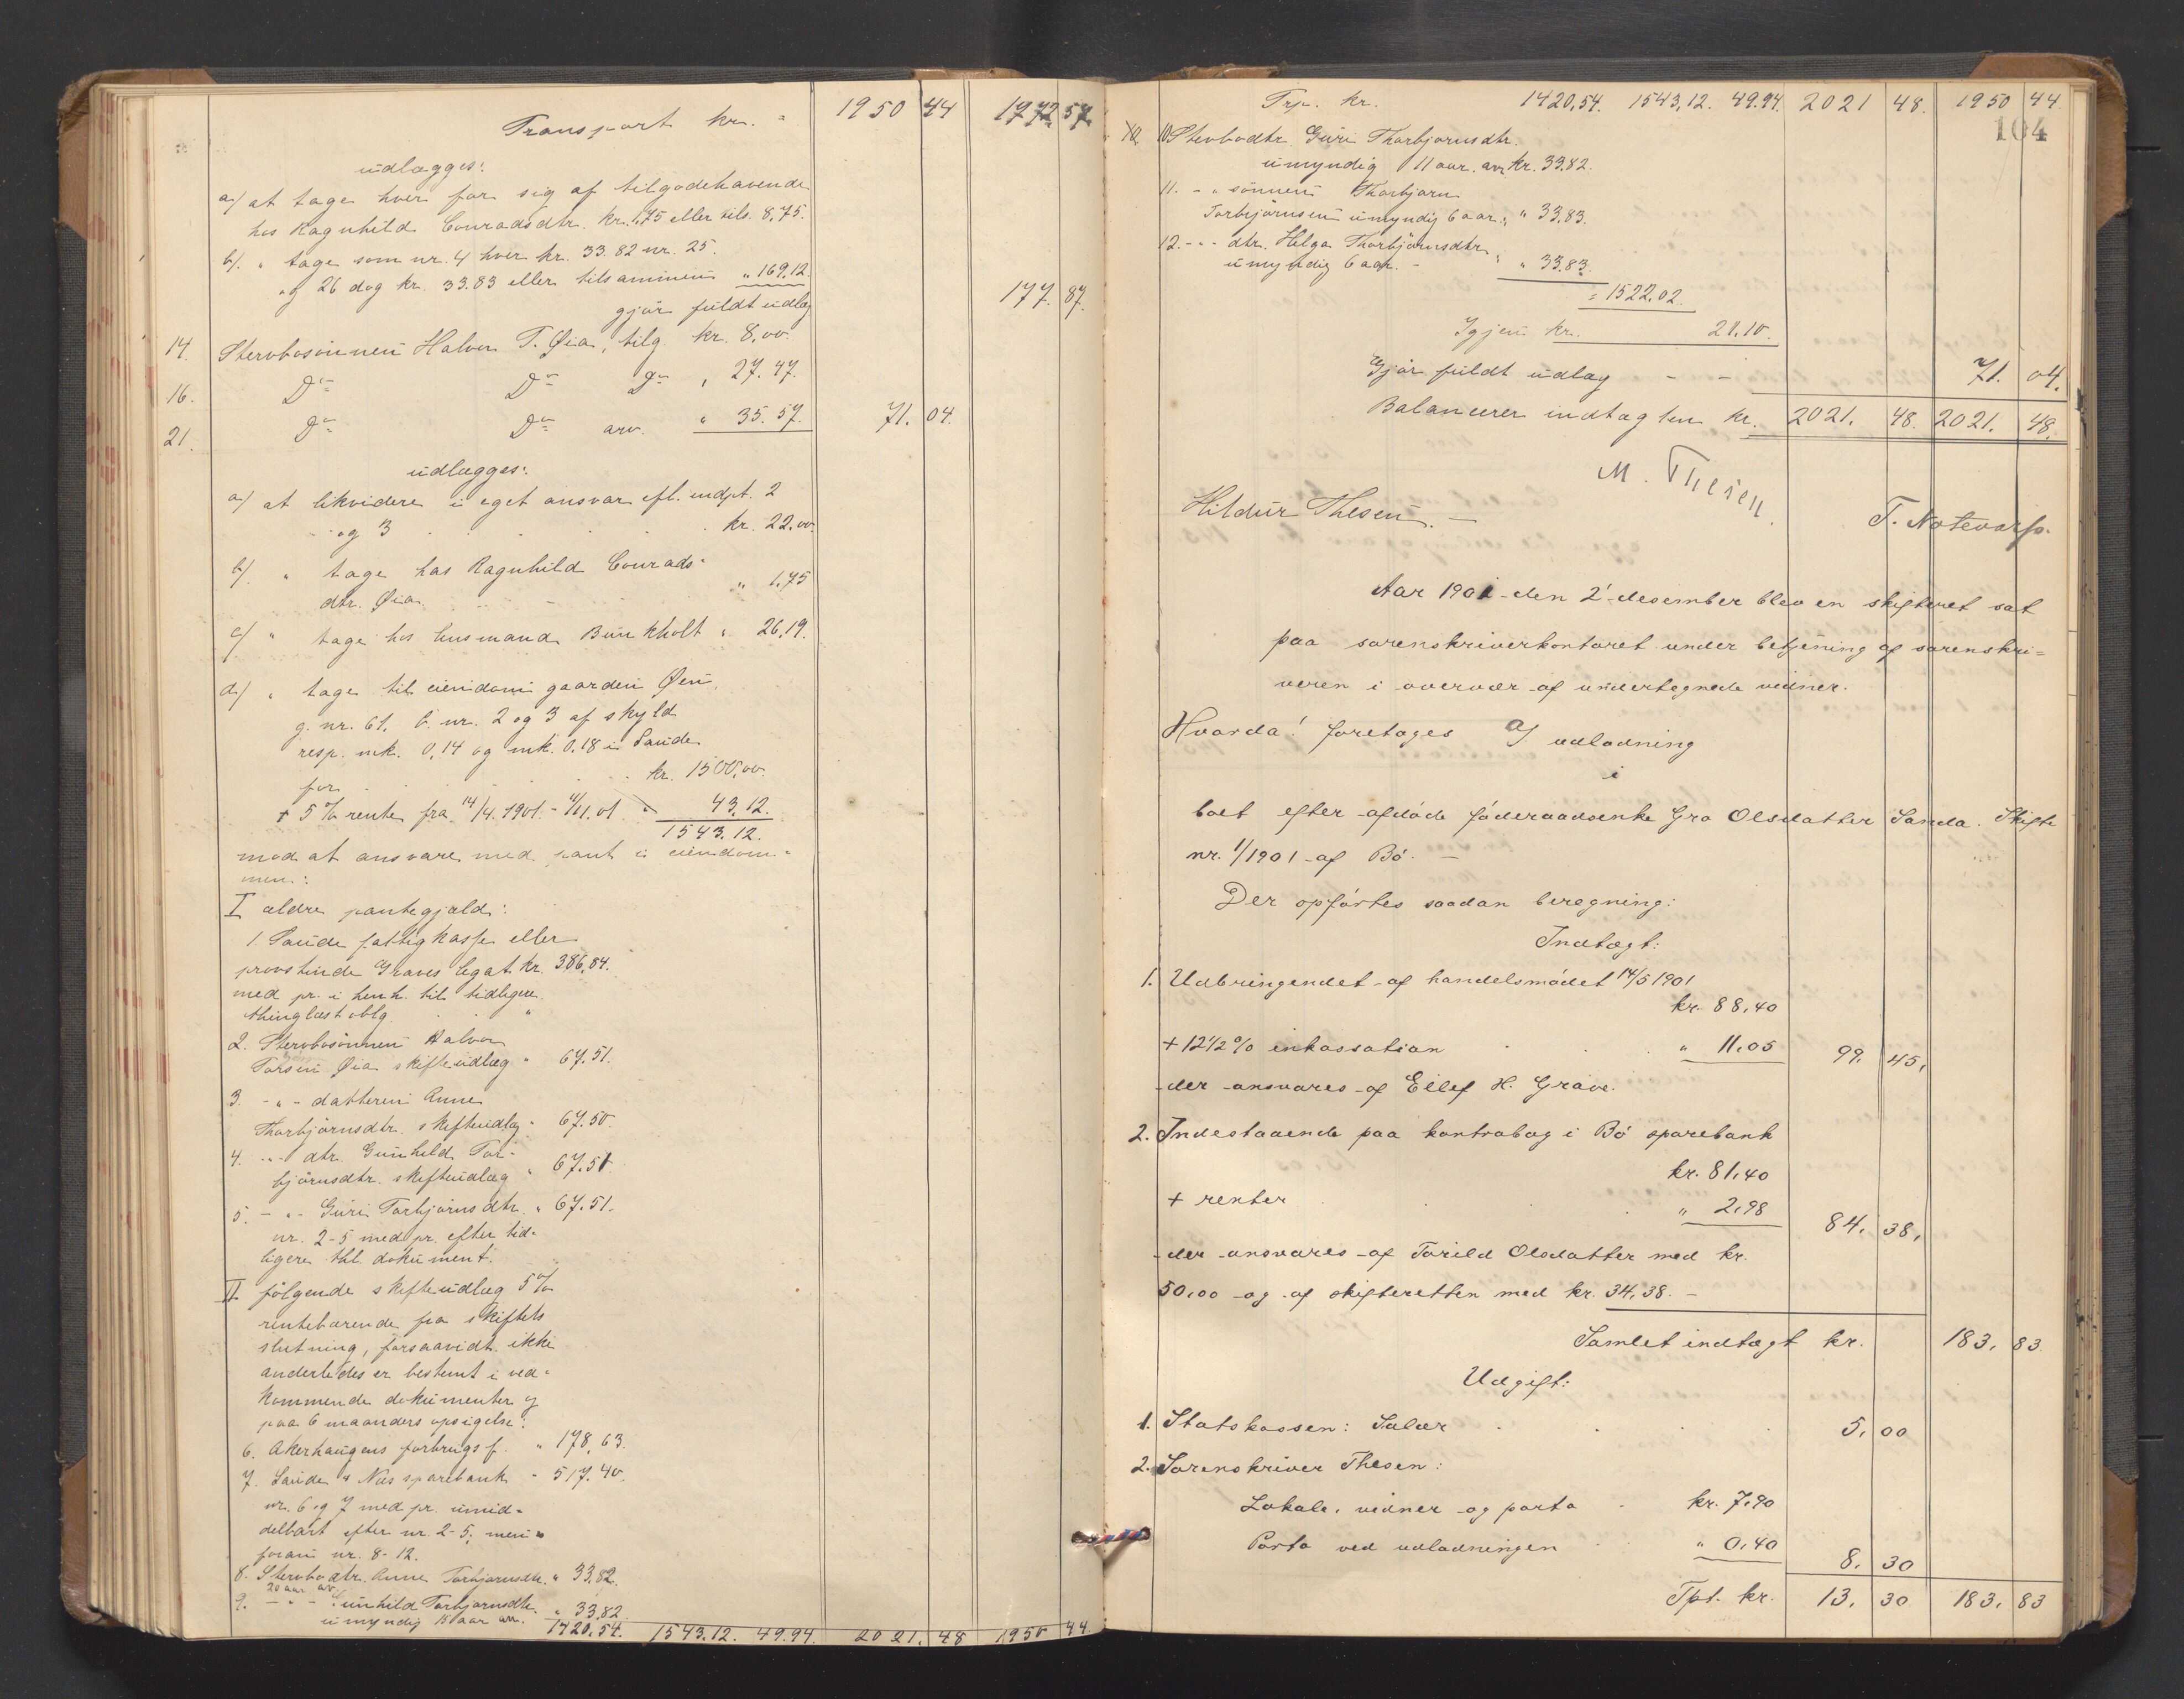 Transport kr. = 1950 44 1772 57.
udlægges:
a/ at tage hver for sig af tilgodehavende
hos Ragnhild Conradsdtr. kr. 1,75 eller tils. 8,75.
b/. " tage som nr. 4 hver kr. 33.82 nr. 25.
og 26 dog kr. 33.83 eller tilsammen " 169,12.
gjør fuldt udlæg 177. 87.
14. Sterbosønnen Halvor T. Øia, tilg. kr. 8,00.
16. Do Do Do " 27.47.
21. Do Do arv. " 35.57. 71. 04.
udlægges:
a/ at likvidere i eget ansvar efl. indpt. 2
og 3 kr. 22.00.
b/. " tage hos Ragnhild Conrads-
dtr. Øia " 1,75
c/ " tage hos husmand Bunkholt " 26,19.
d/ " tage til eiendom gaarden Øen,
g. nr. 61, b. nr. 2 og 3 af skyld
resp. mk. 0,14 og mk. 0.18 i Saude
for kr. 1500,00.
+ 5 % rente fra 14/4.1901 - 11/11.01 " 43,12.
1543.12.
mod at ansvare med pant i eiendom-
men:
I ældre pantegjæld:
1. Saude fattigkasse eller
provstinde Graves legat kr. 386,84.
med pr. i henh. til tidligere
thinglæst oblg. "
2. Sterbosønnen Halvor
Torsen Øia skifteudlæg " 67.51.
3. - " - datteren Anne
Thorbjørnsdtr. skifteudlæg " 67.50.
4. - " - dtr. Gunhild Tor-
bjørnsdtr. skifteudlæg " 67.51
5. - " - Guri Torbjørnsdtr. " 67.51.
nr. 2-5 med pr. efter tid-
ligere thl. dokument.
II følgende skifteudlæg 5 %
rentebærende fra skiftets
slutning, forsaavidt ikke
anderledes er bestemt i ved-
kommende dokumenter og
paa 6 maaneders opsigelse:
6. Akerhaugens forbrugsf. " 178,63.
7. Saude & Nes sparebank - 517.40.
nr. 6 og 7 med pr. umid-
delbart efter nr. 2-5, men
foran nr. 8-12.
8. Sterbodtr. Anne Torbjørnsdtr. " 33,82.
20 aar arv.
9. - " - Gunhild Torbjørnsdtr. " 33,82
umyndig 18 aar arv. 1420,54. 1543,12. 49.94. 2021. 48 1950 44.
Trp. kr. 1420,54. 1543,12. 49.94. 2021 48. 1950 44.
104
10 Sterbodtr. Guri Thorbjørnsdtr.
umyndig 11 aar. arv kr. 33.82.
11. - " sønnen Thorbjørn
Torbjørnsen umyndig 6 aar " " 33,83.
12. - " - dtr. Helga Thorbjørnsdtr.
umyndig 6 aar. - " 33.83.
= 1522.02.
Igjen kr. 21.10.
Gjør fuldt udlæg - - 71. 04.
Balancerer indtægten kr. 2021. 48. 2021. 48.
M. Thesen.
Hildur Thesen. - T. Notevarp.
Aar 1901 den 2' desember blev en skifteret sat
paa sorenskriverkontoret under betjening af sorenskri-
veren i overvær af undertegnede vidner.
Hvorda! foretoges a/ udlodning
i
boet efter afdøde føderaadsenke Gro Olsdatter Sanda. Skifte
nr. 1/1901 af Bø. -
Der opførtes saadan beregning:
Indtægt:
1. Udbringendet af handelsmødet 14/5 1901
kr. 88,40
+ 12 1/2 % inkassation " 11.05 99. 45.
der ansvares af Eilef H. Grave.
2. Indestaaende paa kontrabog i Bø sparebank
kr. 81,40
+ renter " 2,98 84. 38.
der ansvares af Torild Olsdatter med kr.
50,00 og af skifteretten med kr. 34,38. -
Samlet indtægt kr. 183. 83.
Udgift:
1. Statskassen: Salær 5. 00
2. Sorenskriver Thesen:
Lokale, vidner og porto kr. 7,90
Porto ved udlodningen " 0,40 8. 30
Tpt. kr. 13. 30 183. 83